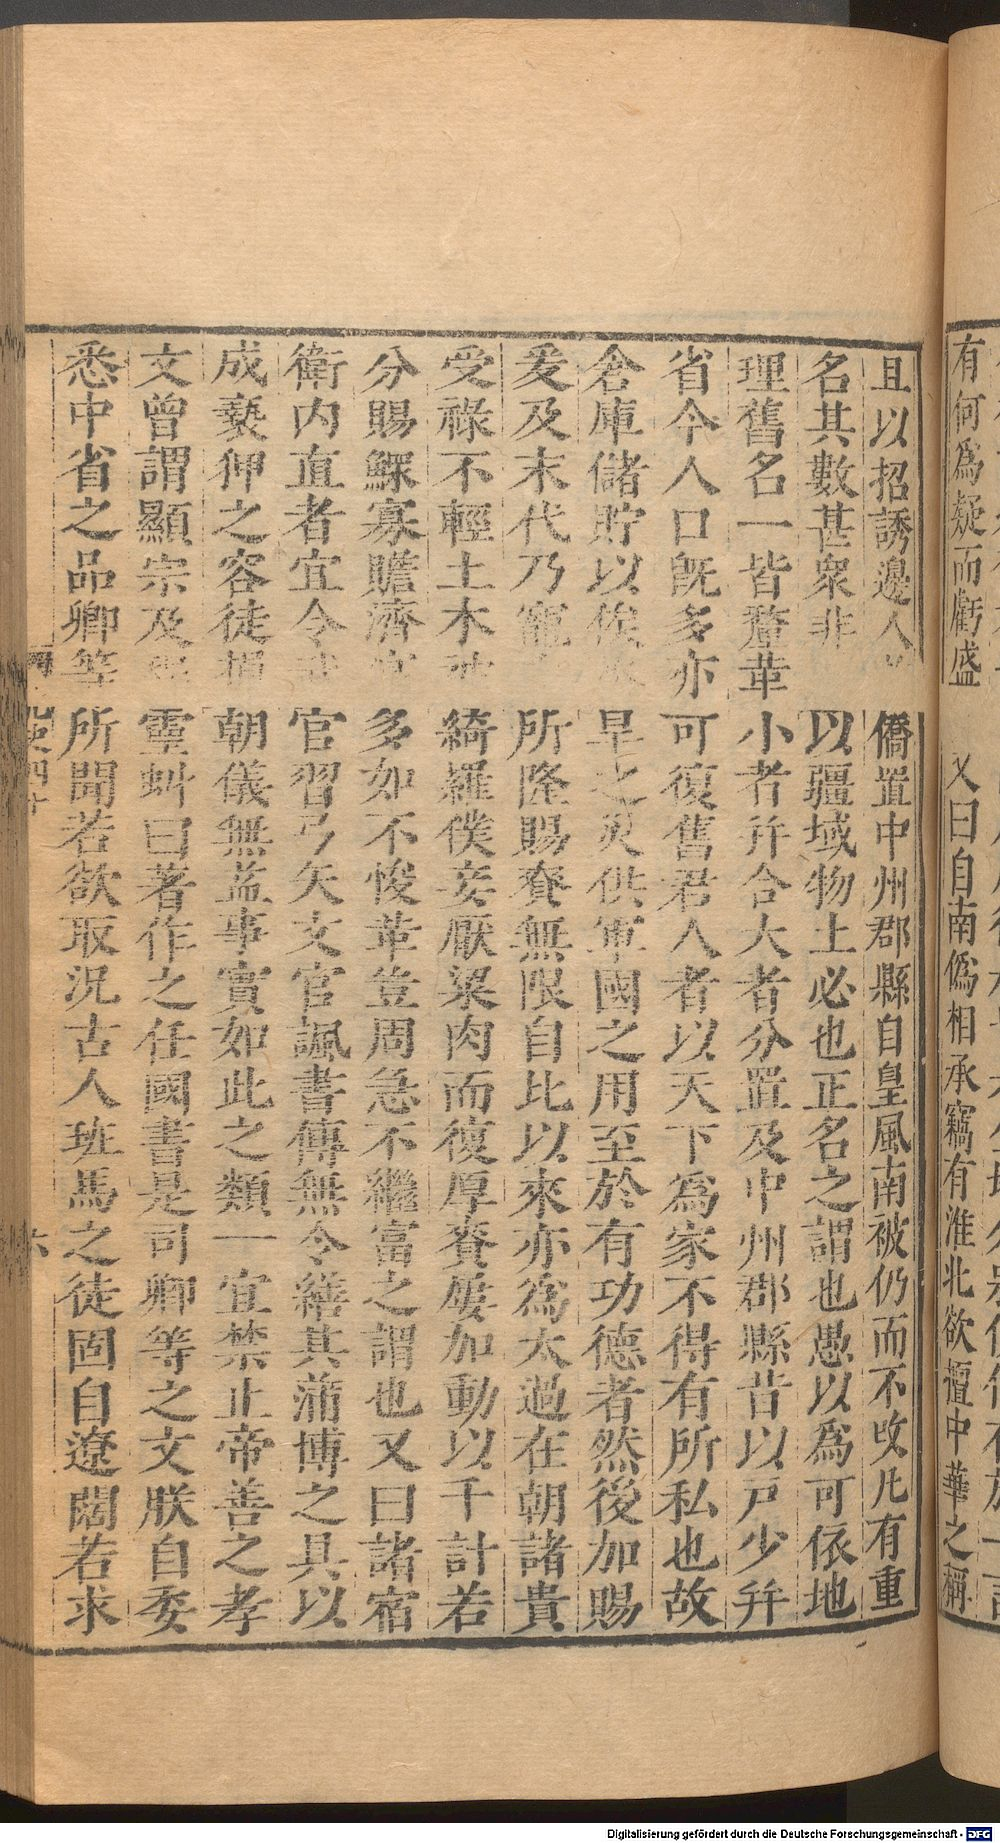 有何爲疑而虧盛又曰自南僞相承竊有淮北欲擅中華之稱
且以招誘邊人僑置中州郡縣自皇風南被仍而不改凡有重
名其數甚衆非以疆域物土必也正名之謂也愚以爲可依地
理舊名一皆釐革小者并合大者分置及中州郡縣昔以戸少并
省今人口既多亦可復舊君人者以天下爲家不得有所私也故
倉庫儲貯以俟旱之災供軍國之用至於有功德者然後加賜
爰及末代乃寵所隆賜賚無限自比以來亦為太過在朝諸貴
受祿不輕土木綺羅僕妾厭粱肉而復厚賚屢加動以千計若
分賜鰥寡贍濟多如不悛革豈周急不繼富之謂也又曰諸宿
衛内直者宜令官習弓矢文官諷書傳無令繕其蒲博之具以
成褻狎之容徒損朝儀無益事實如此之類一宜禁止帝善之孝
文曾謂顯宗及靈虯曰著作之任國書是司卿等之文朕自委
悉中省之品卿等所聞若欲取況古人班馬之徒固自遼闊若求
史四十
六
Digitalisierung gefördert durch die Deutsche Forschungsgemeinschaft - DFG